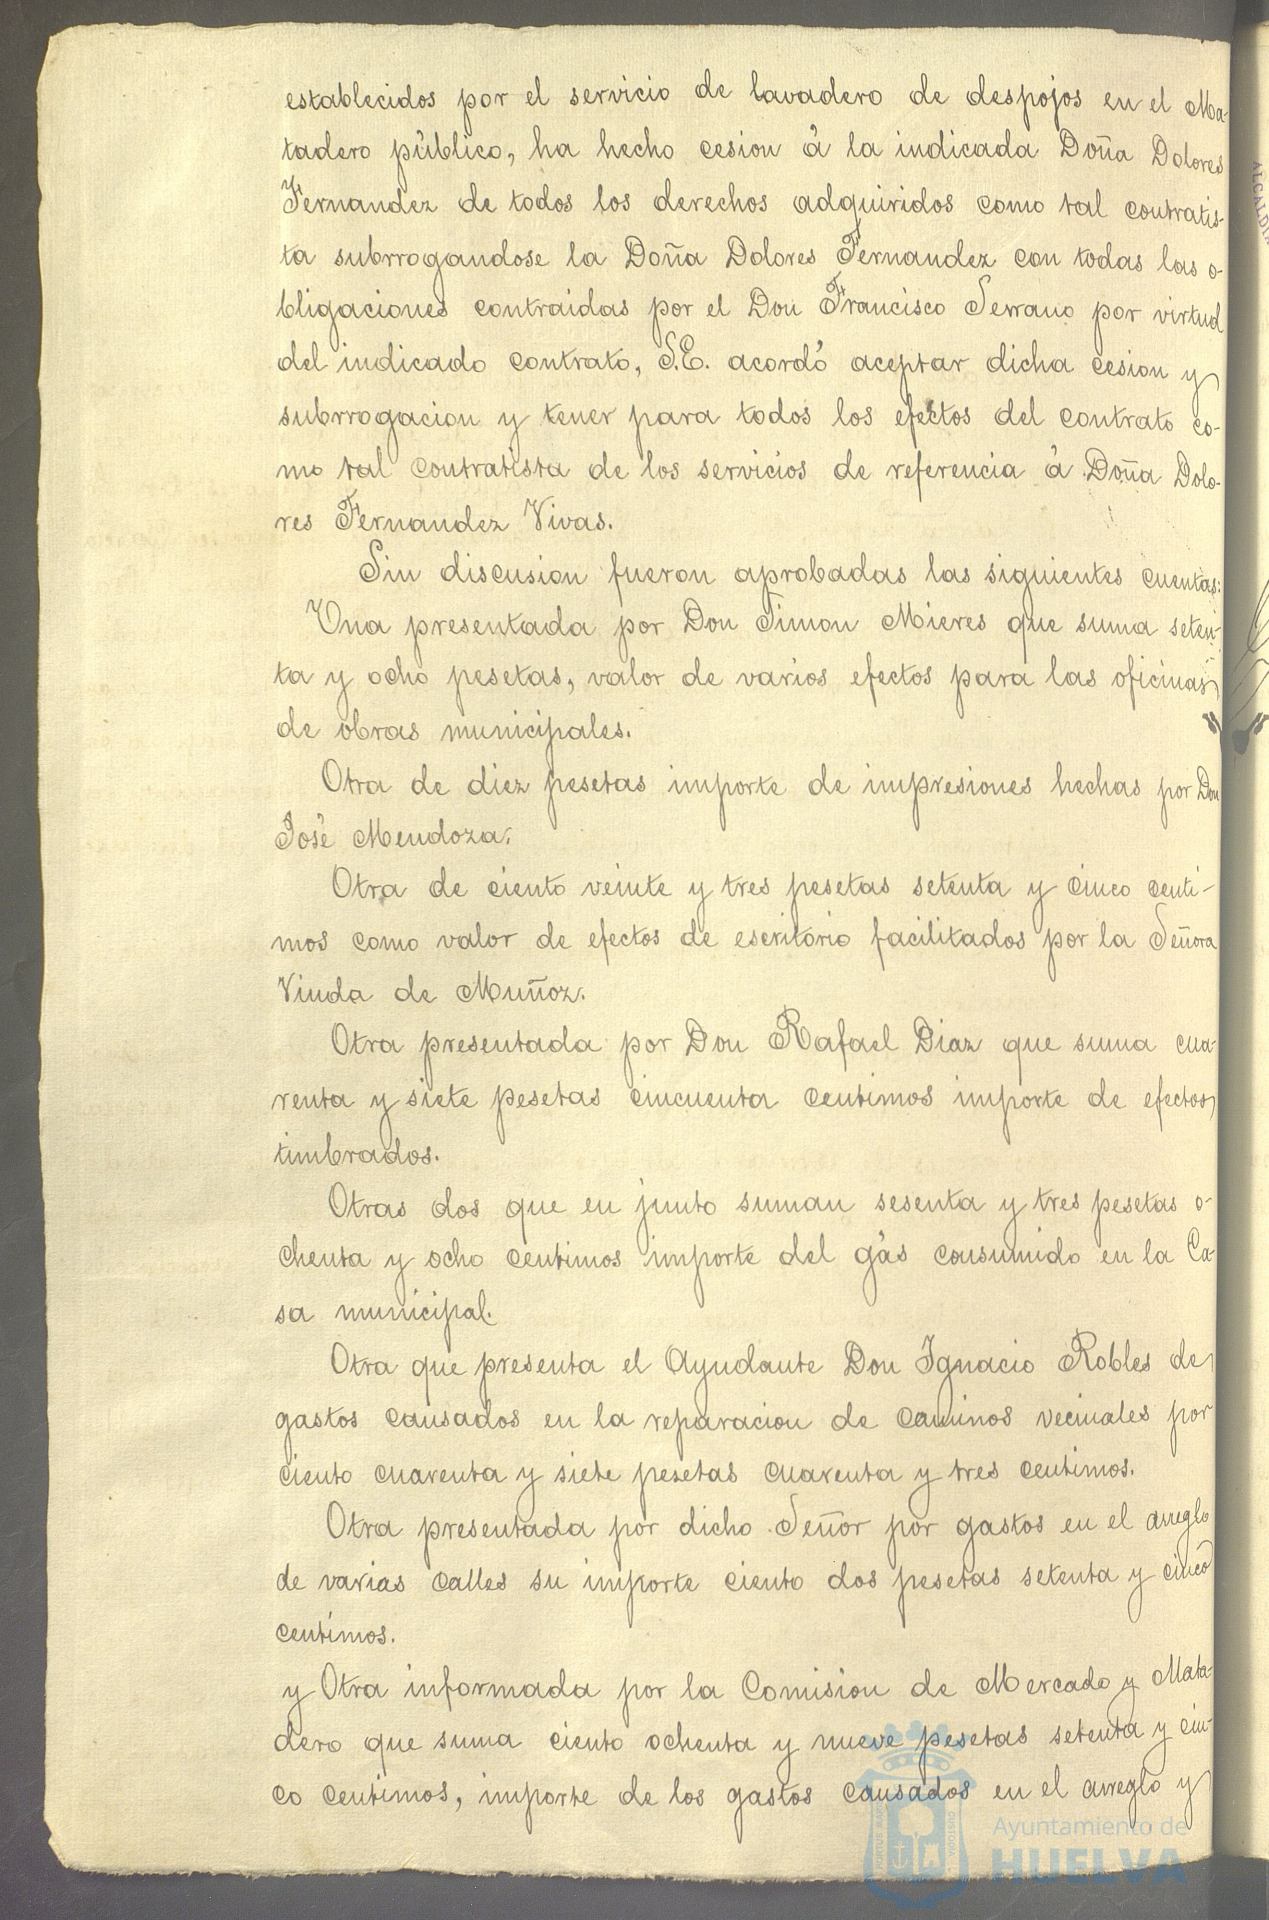 establecidos por el servicio de lavadero de despojos en el Ma-
tadero público, ha hecho cesion á la indicada Doña Dolores
Fernandez de todos los derechos adquiridos como tal contratis-
ta subrrogandose la Doña Dolores Fernandez con todas las o-
bligaciones contraidas por el Don Francisco Serrano por virtud
del indicado contrato, S.E. acordó aceptar dicha cesion y
subrrogacion y tener para todos los efectos del contrato co-
mo tal contratista de los servicios de referencia á Doña Dolo-
res Fernandez Vivas.
Sin discusion fueron aprobadas las siguientes cuentas:
Una presentada por Don Simon Mieres que suma seten-
ta y ocho pesetas, valor de varios efectos para las oficinas
de obras municipales.
Otra de diez pesetas importe de impresiones hechas por Don
José Mendoza.
Otra de ciento veinte y tres pesetas setenta y cinco centi-
mos como valor de efectos de escritorio facilitados por la Señora
Viuda de Muñoz.
Otra presentada por Don Rafael Diaz que suma cua-
renta y siete pesetas cincuenta centimos importe de efectos
timbrados.
Otras dos que en junto suman sesenta y tres pesetas o-
chenta y ocho centimos importe del gás consumido en la Ca-
sa municipal.
Otra que presenta el Ayudante Don Ignacio Robles de
gastos causados en la reparacion de caminos vecinales por
ciento cuarenta y siete pesetas cuarenta y tres centimos.
Otra presentada por dicho Señor por gastos en el arreglo
de varias calles su importe ciento dos pesetas setenta y cinco
centimos.
y Otra informada por la Comision de Mercado y Mata-
dero que suma ciento ochenta y nueve pesetas setenta y cin-
co centimos, importe de los gastos causados en el arreglo y
Ayuntamiento de
HUELVA